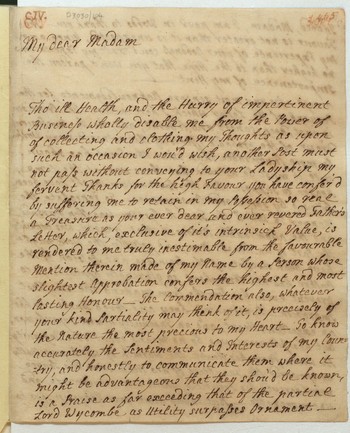 CIV.
My dear Madam
Tho ill Health, and the Hurry of impertinent
Business wholly disable me from the Power of
of collecting and clothing my Thoughts as upon
such an occasion I wou'd wish, another Post must
not pass without conveying to your Ladyship my
fervent Thanks for the high Favour you have confer'd
by suffering me to retain in my Possession so real
a Treasure as your ever dear and ever revered Father's
Letter, which, exclusive of its intrinsick Value, is
rendered to me truly inestimable from the favourable
Mention therein made of my Name by a Person whose
slightest Approbation confers the highest and most
lasting Honour — The Commendation also, whatever
your kind Partiality may think of it, is precisely of
the Nature the most precious to my Heart — To know
accurately the Sentiments and Interests of my Coun
try, and honestly to communicate them where it
might be advantageous that they shou'd be known,
is a Praise as far exceeding that of the partial
Lord Wycombe as Utility surpasses Ornament —